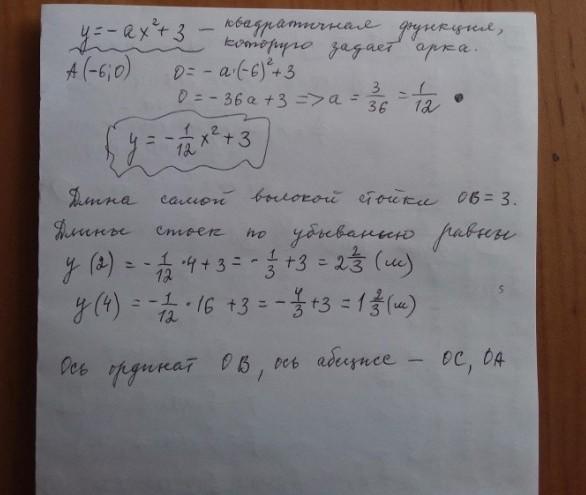 y = -ax² + 3 — квадратичная функция,
которую задает арка.
A(-6;0) 0 = -a·(-6)² + 3
0 = -36a + 3 => a = 3/36 = 1/12
y = -1/12 x² + 3
Длина самой высокой стойки OB = 3.
Длины стоек по убыванию равны
y(2) = -1/12 · 4 + 3 = -1/3 + 3 = 2 2/3 (м)
y(4) = -1/12 · 16 + 3 = -4/3 + 3 = 1 2/3 (м)
Ось ординат OB, ось абсцисс — OC, OA